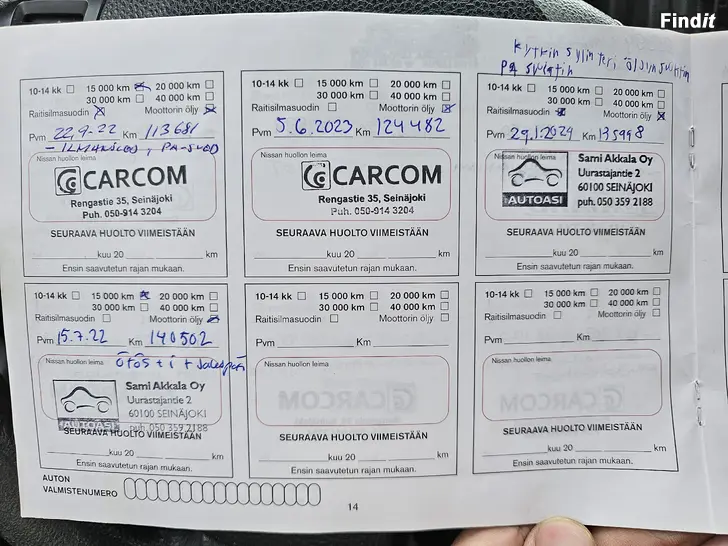 Findit
kytkin sylinteri, öljyn suodatin
10-14 kk 15 000 km 20 000 km
30 000 km 40 000 km
Raitisilmasuodin Moottorin öljy
Pvm 22.9-22 Km 113681
CARCOM
Rengastie 35, Seinäjoki
Puh. 050-914 3204
SEURAAVA HUOLTO VIIMEISTÄÄN
kuu 20 km
Ensin saavutetun rajan mukaan.
10-14 kk 15 000 km 20 000 km
30 000 km 40 000 km
Raitisilmasuodin Moottorin öljy
Pvm 5.6.2023 Km 124482
Nissan huollon leima
CARCOM
Rengastie 35, Seinäjoki
Puh. 050-914 3204
SEURAAVA HUOLTO VIIMEISTÄÄN
kuu 20 km
Ensin saavutetun rajan mukaan.
10-14 kk 15 000 km 20 000 km
30 000 km 40 000 km
Raitisilmasuodin Moottorin öljy
Pvm 29.1.2024 Km 135998
Nissan huollon leima
AUTOASI
Sami Akkala Oy
Uurastajantie 2
60100 SEINÄJOKI
puh. 050 359 2188
SEURAAVA HUOLTO VIIMEISTÄÄN
kuu 20 km
Ensin saavutetun rajan mukaan.
10-14 kk 15 000 km 20 000 km
30 000 km 40 000 km
Raitisilmasuodin Moottorin öljy
Pvm 15.7.22 Km 140502
Nissan huollon leima
AUTOASI
Sami Akkala Oy
Uurastajantie 2
60100 SEINÄJOKI
puh. 050 359 2188
SEURAAVA HUOLTO VIIMEISTÄÄN
kuu 20 km
Ensin saavutetun rajan mukaan.
10-14 kk 15 000 km 20 000 km
30 000 km 40 000 km
Raitisilmasuodin Moottorin öljy
Pvm Km
Nissan huollon leima
SEURAAVA HUOLTO VIIMEISTÄÄN
kuu 20 km
Ensin saavutetun rajan mukaan.
10-14 kk 15 000 km 20 000 km
30 000 km 40 000 km
Raitisilmasuodin Moottorin öljy
Pvm Km
Nissan huollon leima
SEURAAVA HUOLTO VIIMEISTÄÄN
kuu 20 km
Ensin saavutetun rajan mukaan.
AUTON
VALMISTENUMERO
14